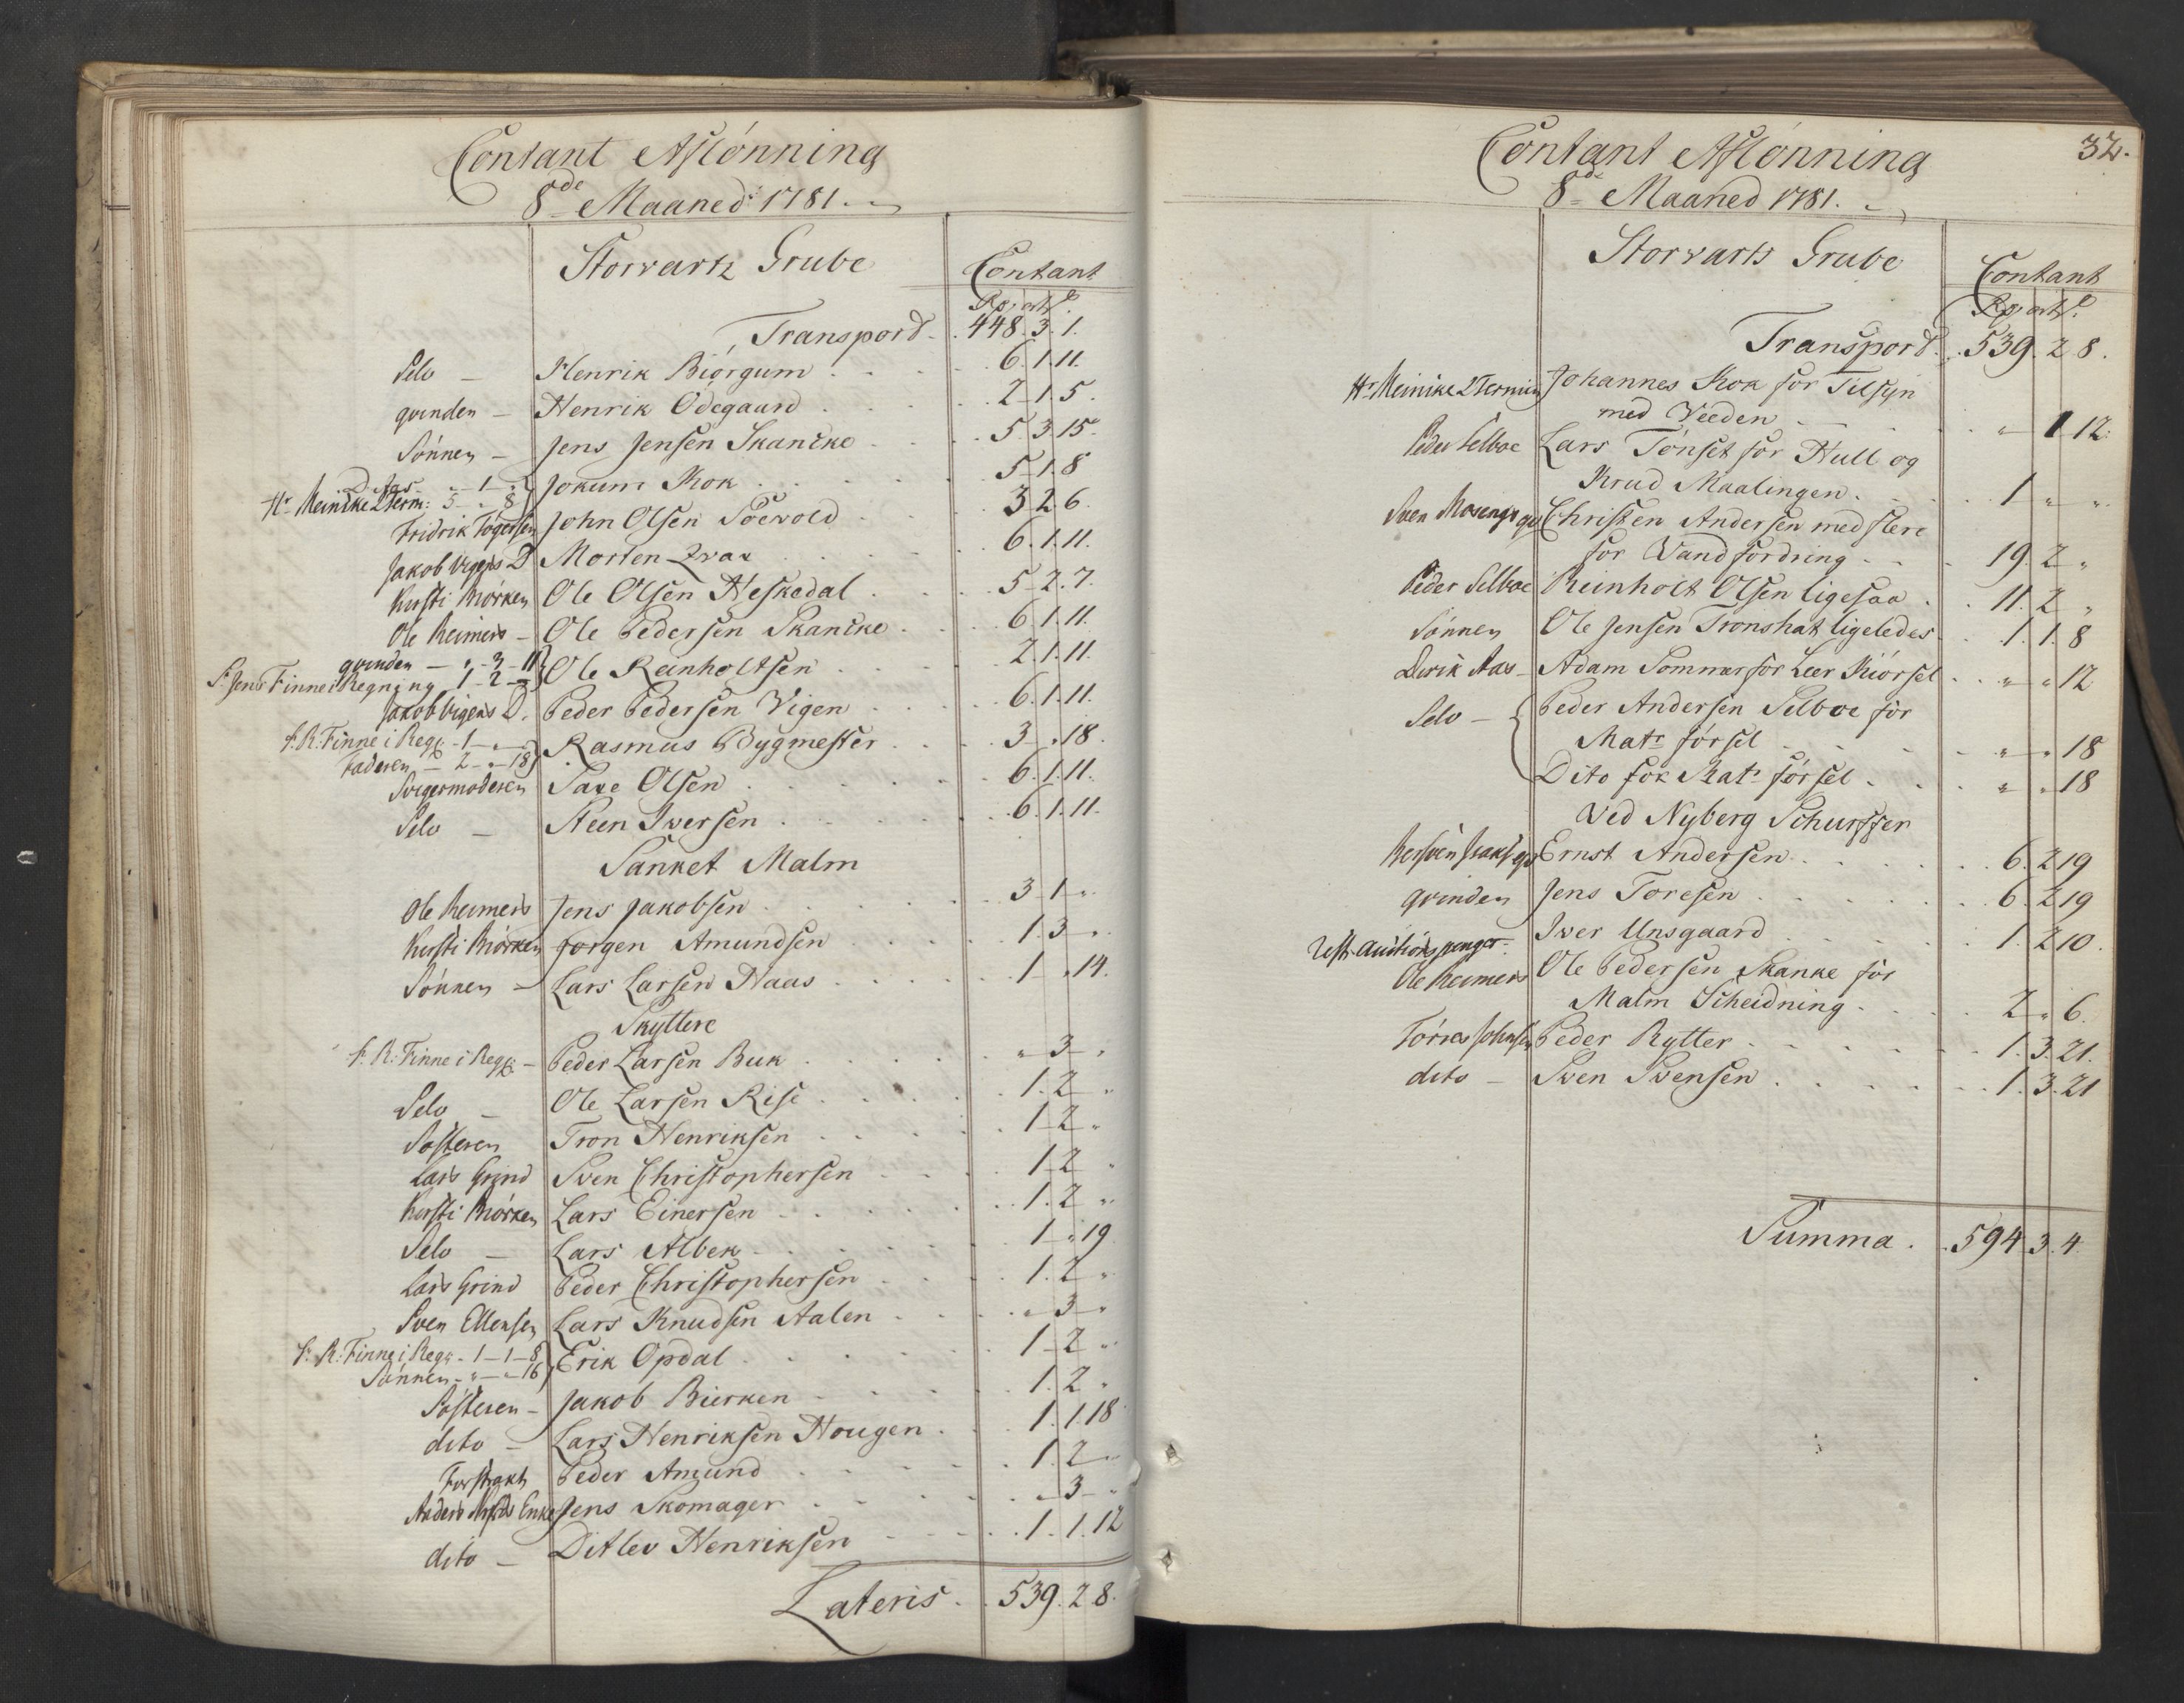 Contant Aflönning
8de Maaned 1781.
Storvartz Grube
Contant
Rp: ort ſ.
Transpord . 448. 3. 1.
Selv — Henrik Biörgum . . . 6. 1. 11.
qvinden — Henrik Odegaard . . . 2. 1. 5.
Sönnen — Jens Jensen Skancke . . . 5. 3. 15.
Hr. Meincke 2 Term: 5 — „ 8 } Jokum Kok . . . 5. 1. 8
Fridrik Togersen John Olsen Soevold . . . 3. 2. 6.
Jakob Vigens D. Morten Qvar . . . 6. 1. 11.
Kersti Mörken Ole Olsen Heskedal . . . 5. 2. 7.
Ole Reimers — Ole Pedersen Skancke . . . 6. 1. 11.
qvinden — „ 3 — 11 }
S. Jens Finne i Regning 1 — 2 — „ } Ole Reinholtsen . . . 2. 1. 11.
Jakob Vigens D. Peder Pedersen Vigen . . . 6. 1. 11.
S. R: Finne i Regg: 1 — „ — „ }
Faderen — 2 — „ — 18 } Rasmus Bygmester . . . 3. „ 18.
Svigermoderen Saxe Olsen . . . 6. 1. 11.
Selv — Steen Iversen . . . 6. 1. 11.
Sanket Malm
Ole Reimers Jens Jakobsen . . . 3. 1. „
Kersti Mörken Jorgen Amundsen . . . 1. 3. „
Sönnen — Lars Larsen Haas . . . 1. „ 14.
Skyttere
S. R: Finne i Regg: — Peder Larsen Buk . . . „ 3. „
Selv — Ole Larsen Rise . . . 1. 2. „
Søsteren Tron Henriksen . . . 1. 2. „
Lars Grind Sven Christophersen . . . 1. 2. „
Kersti Mörken Lars Einersen . . . 1. 2. „
Selv — Lars Albek . . . 1. „ 19
Lars Grind Peder Christophersen . . . 1. 2. „
Sven Ellensen Lars Knudsen Aalen . . . „ 3. „
S. R: Finne i Regg: 1 — 1 — 8 }
Sönnen — „ — „ 16 } Erik Opdal . . . 1. 2. „
Søsteren — Jakob Bierken . . . 1. 2. „
dito — Lars Henriksen Hougen . . . 1. 1. 18
Forstrakt Peder Amund . . . 1. 2. „
Anders Enke Jens Skomager . . . „ 3. „
dito — Ditlev Henriksen . . . 1. 1. 12
Lateris . . 539. 2. 8.
32.
Contant Aflönning
8de Maaned 1781.
Storvartz Grube
Contant
Rp: ort ſ.
Transpord . . 539. 2. 8.
Hr Meincke 2 Termin Johannes Kok for Tilsyn
med Veeden . . . „ 1. 12.
Peder Selboe Lars Tönset for Hull og
Krud Maalingen . . . 1. „ „
Sven Mosengs qv Christen Andersen med flere
for Vandfordring . . . 19. 2. „
Peder Selboe Reinholt Olsen ligesaa . . 11. 2. „
Sönnen Ole Jensen Tronshat ligeledes . . 1. 1. 8
Derik Aas — Adam Sommer for Leer Kiörsel . . „ „ 12
Selv — { Peder Andersen Selboe for
Matr försel . . . „ „ 18
Dito for Matr försel . . . „ „ 18
Ved Nyberg Schurffer
qv Ernst Andersen . . . 6. 2. 19
qvinden Jens Toresen . . . 6. 2. 19
Rest. Auctions penger Iver Unsgaard . . . 1. 2. 10.
Ole Reimers Ole Pedersen Skanke for
Malm Scheidning . . . 2. „ 6.
Törres Johnsen Peder Rytter . . . 1. 3. 21.
dito — Sven Svensen . . . 1. 3. 21
Summa . . 594. 3. 4.